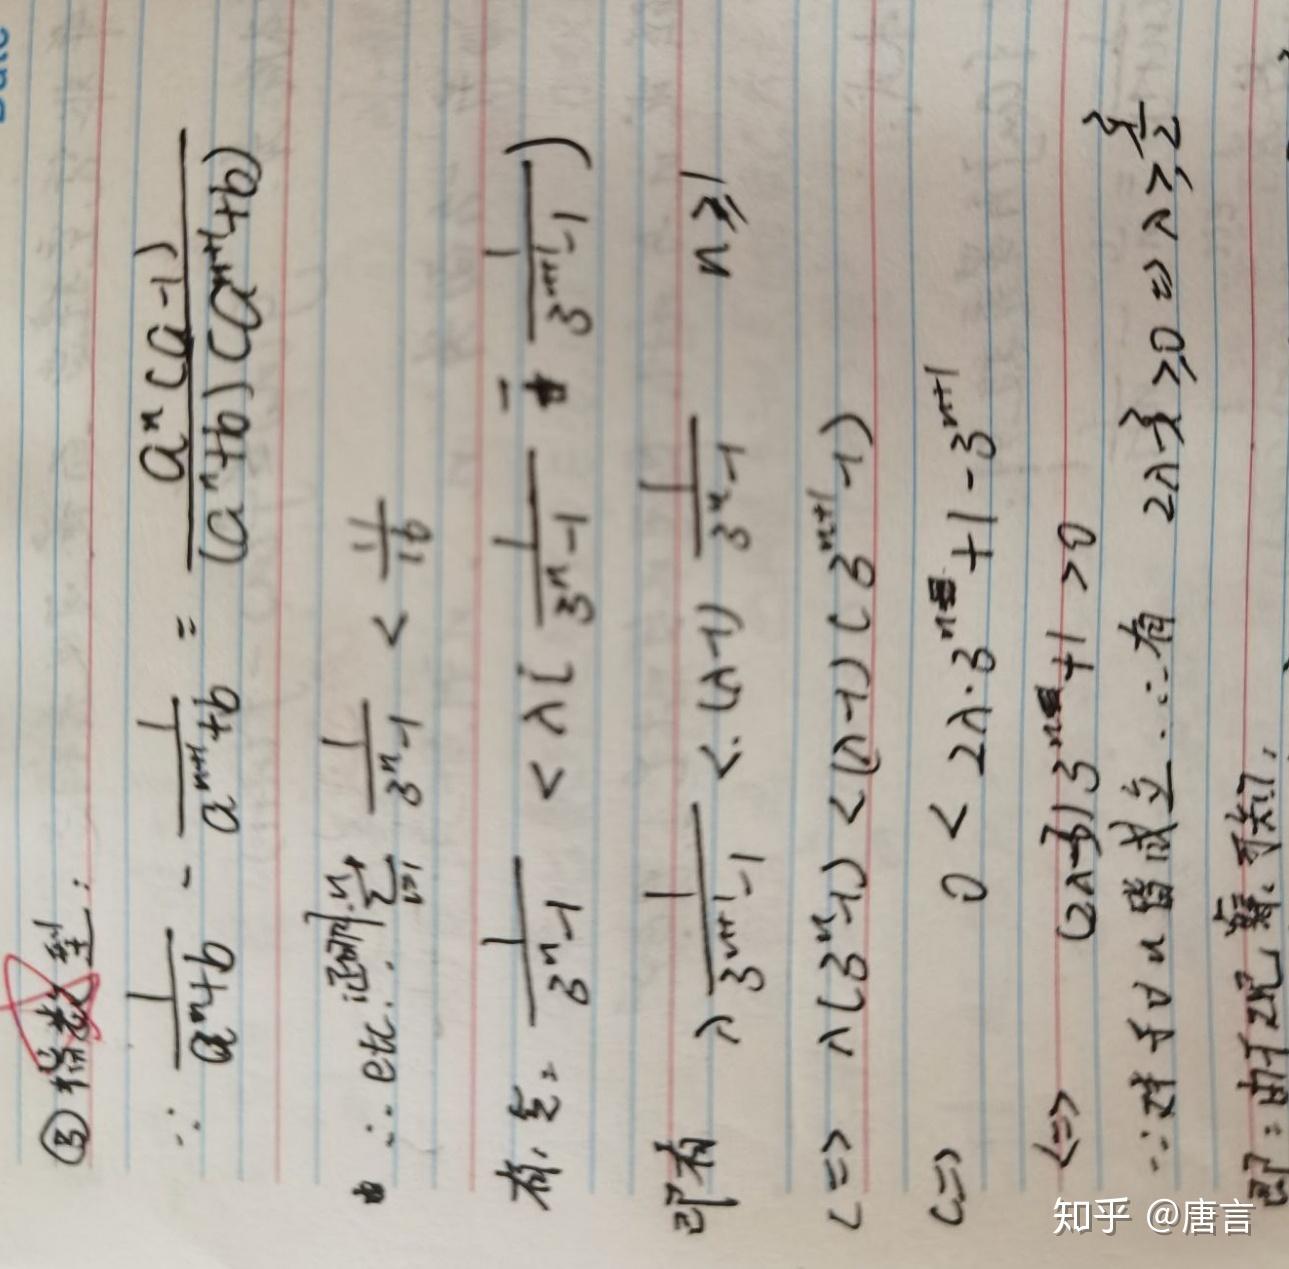 ③ 指数型:
∵ 1/(aⁿ+b) - 1/(aⁿ⁺¹+b) = aⁿ(a-1)/((aⁿ+b)(aⁿ⁺¹+b))
∴ etc. 证明: ∑ᵢ₌₁ⁿ 1/(3ⁿ-1) < 11/16
1/(3ⁿ-1) < λ[1/(3ⁿ-1) - 1/(3ⁿ⁺¹-1))
即有 λ 1/(3ⁿ⁺¹-1) < (λ-1) 1/(3ⁿ-1) n≥1
<=> λ(3ⁿ-1) < (λ-1)(3ⁿ⁺¹-1)
<=> 0 < 2λ·3ⁿ+1-3ⁿ⁺¹
<=> (2λ-3)3ⁿ+1>0
∵对于∀n皆成立. ∴有 2λ-3≥0 => λ≥3/2
即: 由于
知乎 @唐言